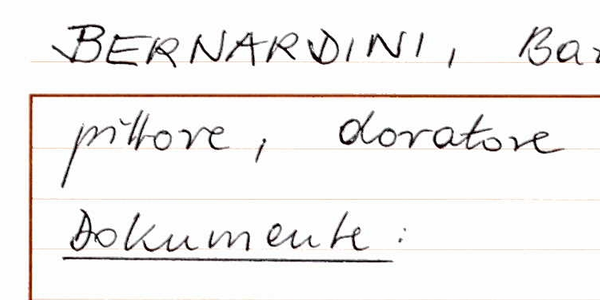 BERNARDINI, Bar
pittore, doratore
Dokumente: